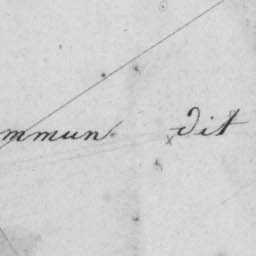 mmun dit